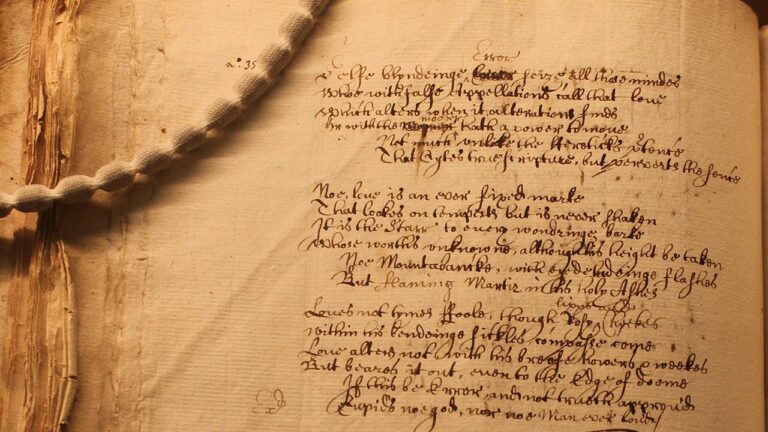 n°. 35
Error
Selfe blyndeinge seize all those mindes
Who with false Appellations call that love
Which alters when it alterations finds
mover
Or with the hath a power to move
Not much unlike the Hereticks p̱tence
That scytes true scripture, but perverts the sence
Noe, love is an ever fixed marke
That lookes on tempests but is never shaken
It is the Starr to every wandringe barke
Whose worths unknowne, although his height be taken
Noe Mountabancke, with eyedeludeinge flashes
But flameing Martir in his holy Ashes
lipps and
Loves not tymes Foole, though Rosy Cheekes
within his bendeinge sickles compasse come
Love alters not with his breife howers & weekes
But beares it out, even to the Edge of doome
If this be Error and not truth approvd
Cupids noe god, nor noe Man ever loved